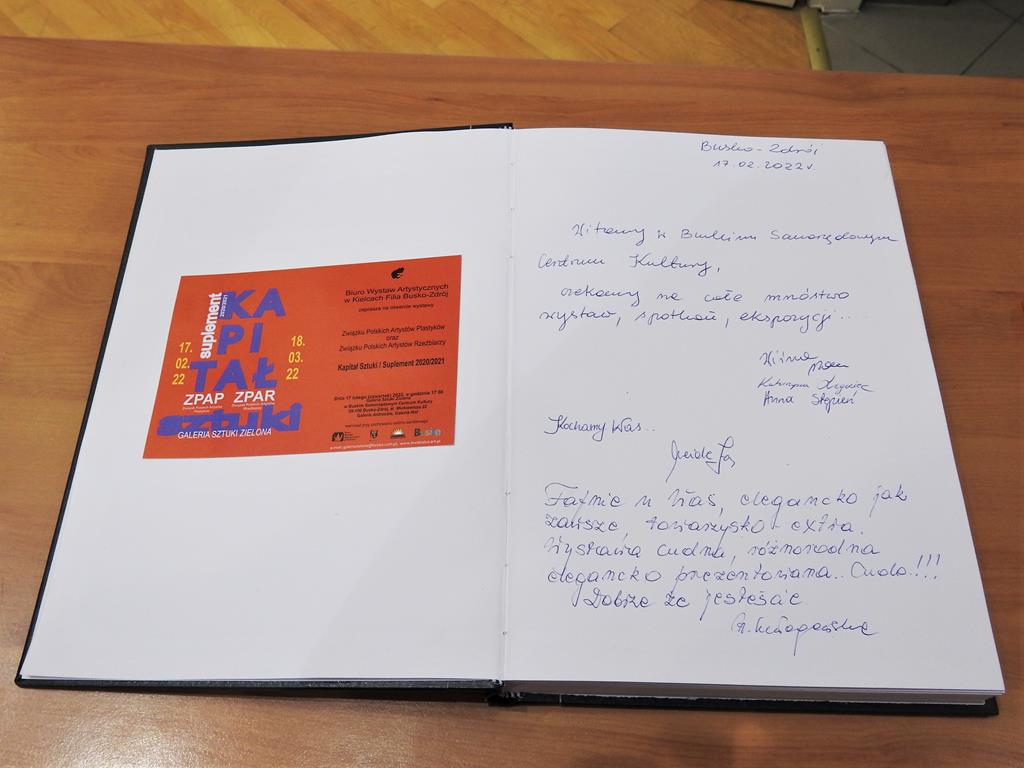 Biuro Wystaw Artystycznych
w Kielcach Filia Busko-Zdrój
zaprasza na otwarcie wystawy
Związku Polskich Artystów Plastyków
oraz
Związku Polskich Artystów Rzeźbiarzy
Kapitał Sztuki / Suplement 2020/2021
suplement
2020/2021
KA
PI
TAŁ
17.
02.
22
18.
03.
22
ZPAP ZPAR
sztuki
GALERIA SZTUKI ZIELONA
Busko-Zdrój
17.02.2022r.
Witamy w Buskim Samorządowym
Centrum Kultury,
czekamy na całe mnóstwo
wystaw, spotkań, ekspozycji....
Anna Stępień
Kochamy Was...
Fajnie u Was, elegancko jak
zawsze, towarzysko - extra.
Wystawa cudna, różnorodna
elegancko prezentowana.. Cudo.!!!
Dobrze że jesteście.